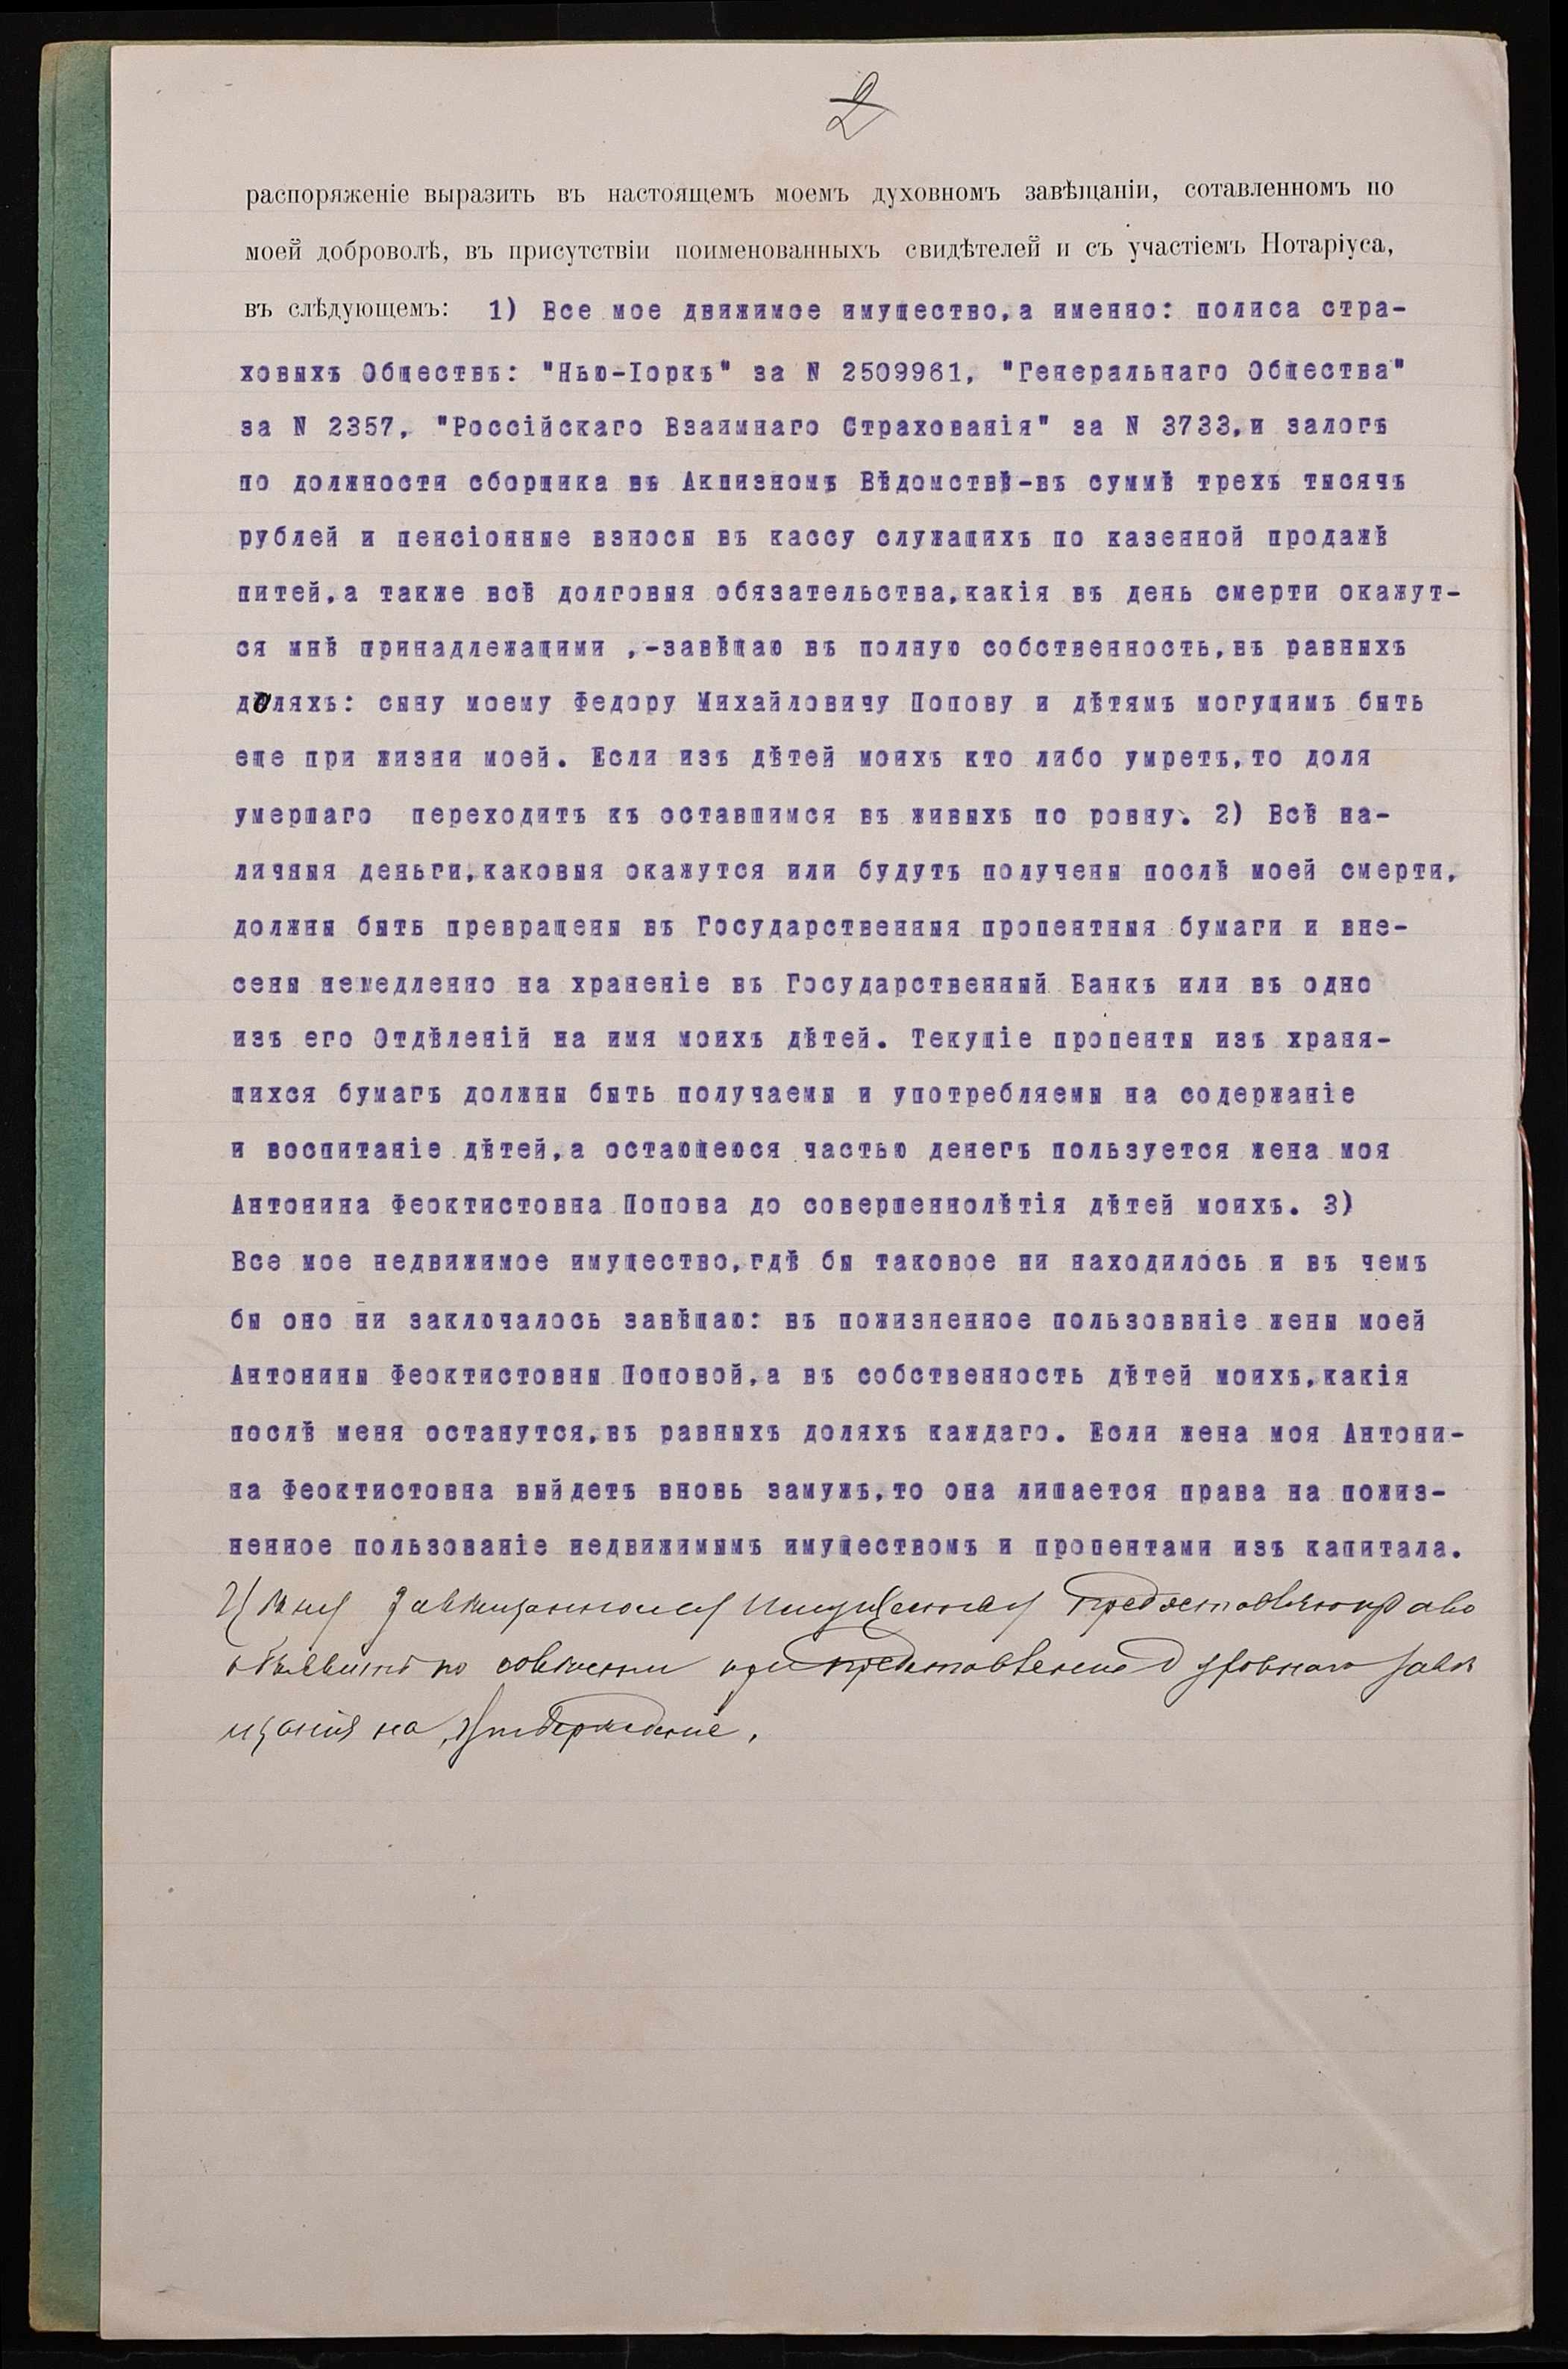 2
распоряженіе выразить въ настоящемъ моемъ духовномъ завѣщаніи, сотавленномъ по
моей доброволѣ, въ присутствіи поименованныхъ свидѣтелей и съ участіемъ Нотаріуса,
въ слѣдующемъ: 1) Все мое движимое имущество,а именно: полиса стра-
ховыхъ Обществъ: "Нью-Іоркъ" за N 2509961, "Генеральнаго Общества"
за N 2357, "Россійскаго Взаимнаго Страхованія" за N 3733,и залогъ
по должности сборщика въ Акцизномъ Вѣдомствѣ-въ суммѣ трехъ тысячъ
рублей и пенсіонные взносы въ кассу служащихъ по казенной продажѣ
питей,а также всѣ долговыя обязательства,какія въ день смерти окажут-
ся мнѣ принадлежащими ,-завѣщаю въ полную собственность,въ равныхъ
доляхъ: сыну моему Федору Михайловичу Попову и дѣтямъ могущимъ быть
еще при жизни моей. Если изъ дѣтей моихъ кто либо умретъ,то доля
умершаго переходитъ къ оставшимся въ живыхъ по ровну. 2) Всѣ на-
личныя деньги,каковыя окажутся или будутъ получены послѣ моей смерти,
должны быть превращены въ Государственныя процентныя бумаги и вне-
сены немедленно на храненіе въ Государственный Банкъ или въ одно
изъ его Отдѣленій на имя моихъ дѣтей. Текущіе проценты изъ храня-
щихся бумагъ должны быть получаемы и употребляемы на содержаніе
и воспитаніе дѣтей,а остающеюся частью денегъ пользуется жена моя
Антонина Феоктистовна Попова до совершеннолѣтія дѣтей моихъ. 3)
Все мое недвижимое имущество,гдѣ бы таковое ни находилось и въ чемъ
бы оно ни заключалось завѣщаю: въ пожизненное пользоввніе жены моей
Антонины Феоктистовны Поповой,а въ собственность дѣтей моихъ,какія
послѣ меня останутся,въ равныхъ доляхъ каждаго. Если жена моя Антони-
на Феоктистовна выйдетъ вновь замужъ,то она лишается права на пожиз-
ненное пользованіе недвижимымъ имуществомъ и процентами изъ капитала.
Цѣну завѣщанному имуществу предоставляю право
объявить по совѣсти при представленіи духовнаго завѣ
щанія на утвержденіе.